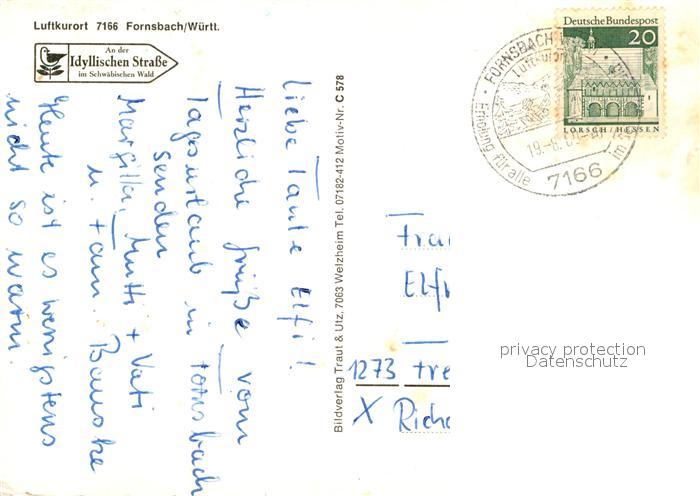 Luftkurort 7166 Fornsbach/Württ.
An der
Idyllischen Straße
im Schwäbischen Wald
Liebe Tante Elfi!
Herzliche Grüße vom
Tagesurlaub in Fornsbach
senden
Margitta, Mutti + Vati
u. Fam.
Heute ist es wenigstens
nicht so warm.
Bildverlag Traut & Utz, 7063 Welzheim Tel. 07182-412 Motiv-Nr. C 578
FORNSBACH
Luftkurort
Erholung für alle
7166
im
Deutsche Bundespost
20
LORSCH/HESSEN
Frau
Elfr
1273 Fre
X Richa
privacy protection
Datenschutz